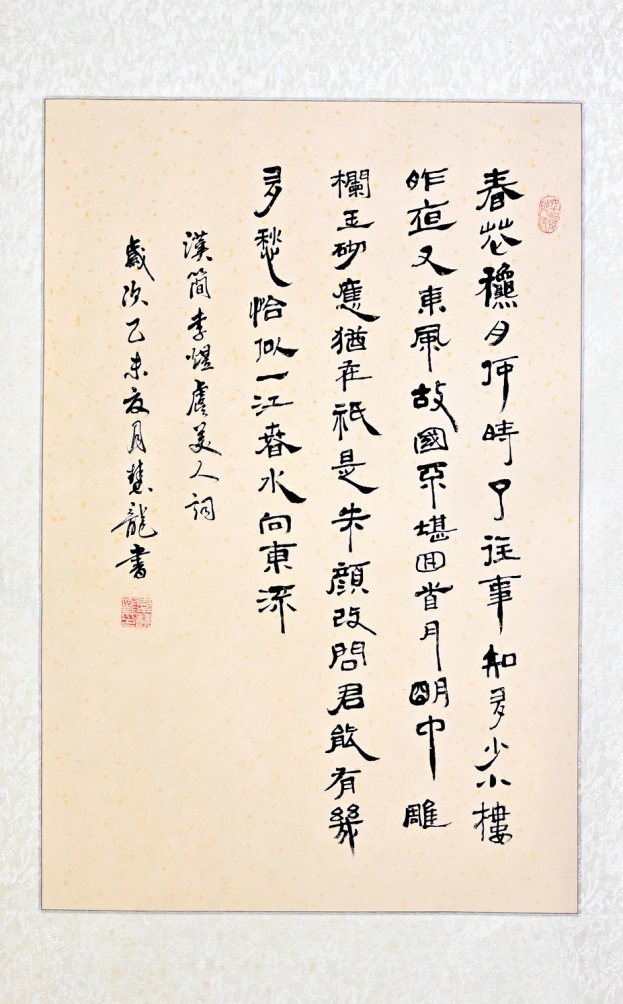 春花穐月何時了往事知多少小樓
昨夜又東風故國不堪回首月明中雕
欄玉砌應猶在祇是朱顏改問君能有幾
多愁恰似一江春水向東流
漢簡李煜虞美人詞
歲次乙未夏月慧龍書